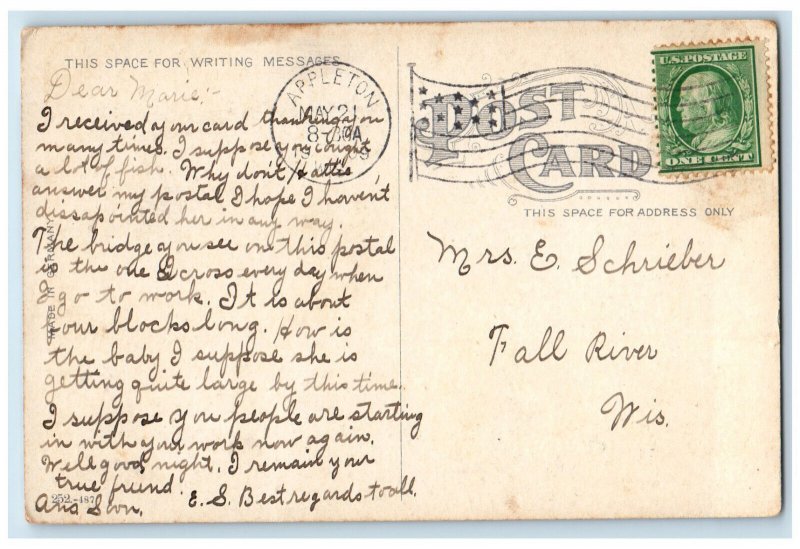 THIS SPACE FOR WRITING MESSAGES
Dear Marie:-
I received your card thanking you
many times. I suppose you caught
a lot of fish. Why don't Hattie
answer my postal I hope I haven't
dissapointed her in any way.
The bridge you see on this postal
is the one I cross every day when
I go to work. It is about
four blocks long. How is
the baby I suppose she is
getting quite large by this time.
I suppose you people are starting
in with your work now again.
Well good night. I remain your
true friend
Ans Soon. E. S. Best regards to all.
MADE IN GERMANY
252.-487
APPLETON
MAY 21
8 AM
WIS.
POST
CARD
U.S. POSTAGE
ONE CENT
THIS SPACE FOR ADDRESS ONLY
Mrs. E. Schrieber
Fall River
Wis.